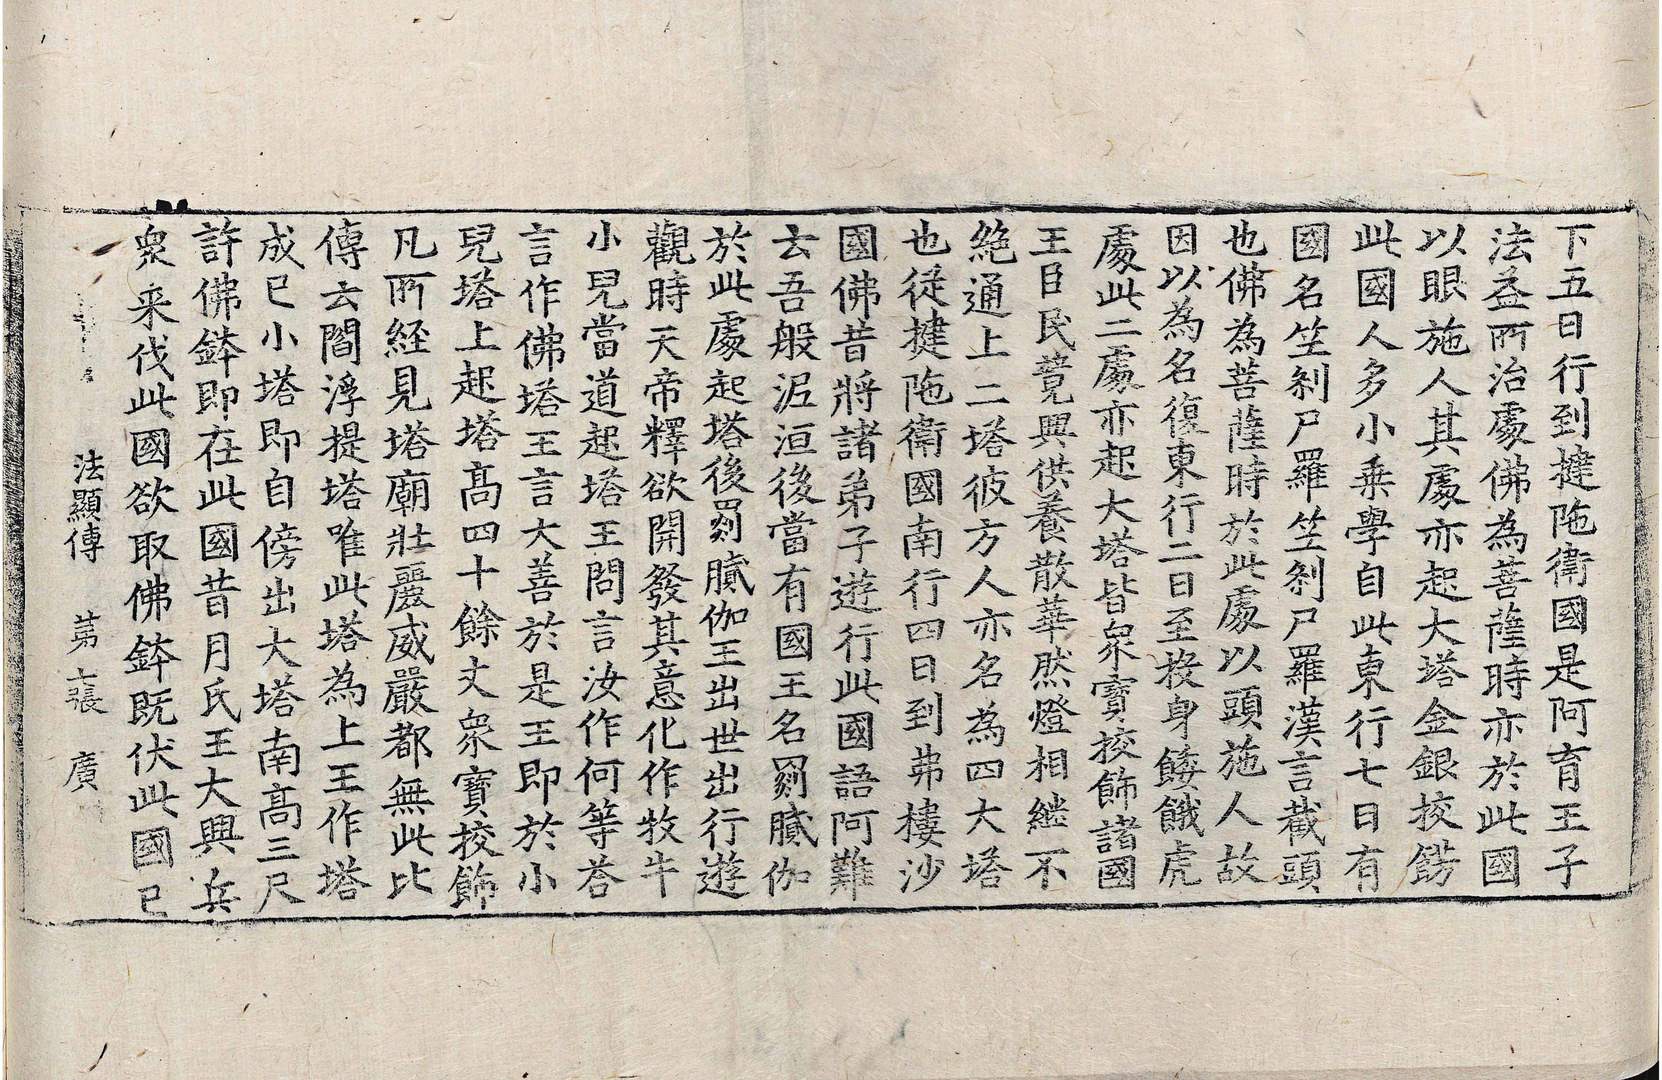 下五日行到揵陁衛國是阿育王子
法益所治處佛為菩薩時亦於此國
以眼施人其處亦起大塔金銀挍餝
此國人多小乗學自此東行七日有
國名竺剎尸羅竺剎尸羅漢言截頭
也佛為菩薩時於此處以頭施人故
因以為名復東行二日至投身餧餓虎
處此二處亦起大塔皆衆寶挍飾諸國
王臣民競興供養散華然燈相繼不
絶通上二塔彼方人亦名為四大塔
也従揵陁衛國南行四日到弗樓沙
國佛昔將諸弟子遊行此國語阿難
云吾般泥洹後當有國王名罽膩伽
於此處起塔後罽膩伽王出世出行遊
觀時天帝釋欲開發其意化作牧牛
小兒當道起塔王問言汝作何等荅
言作佛塔王言大善於是王即於小
兒塔上起塔塔高四十餘丈衆寶挍飾
凡所經見塔廟壯麗威嚴都無此比
傳云閻浮提塔唯此塔為上王作塔
成已小塔即自傍出大塔南高三尺
許佛鉢即在此國昔月氏王大興兵
衆来伐此國欲取佛鉢既伏此國已
法顯傳 第七張 廣